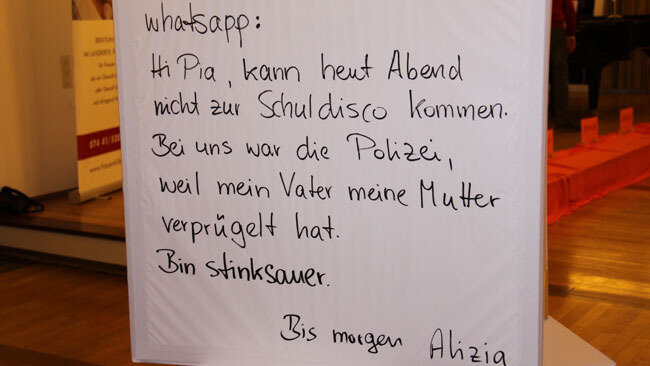 whatsapp:
Hi Pia, kann heut Abend
nicht zur Schuldisco kommen.
Bei uns war die Polizei,
weil mein Vater meine Mutter
verprügelt hat.
Bin stinksauer.
Bis morgen Alizia
BERATUNG
074 41/520